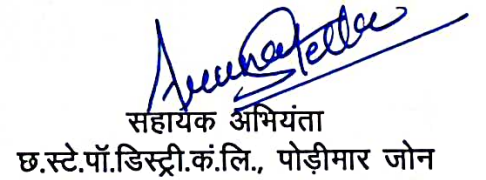 सहायक अभियंता
छ.स्टे.पॉ.डिस्ट्री.कं.लि., पोड़ीमार जोन